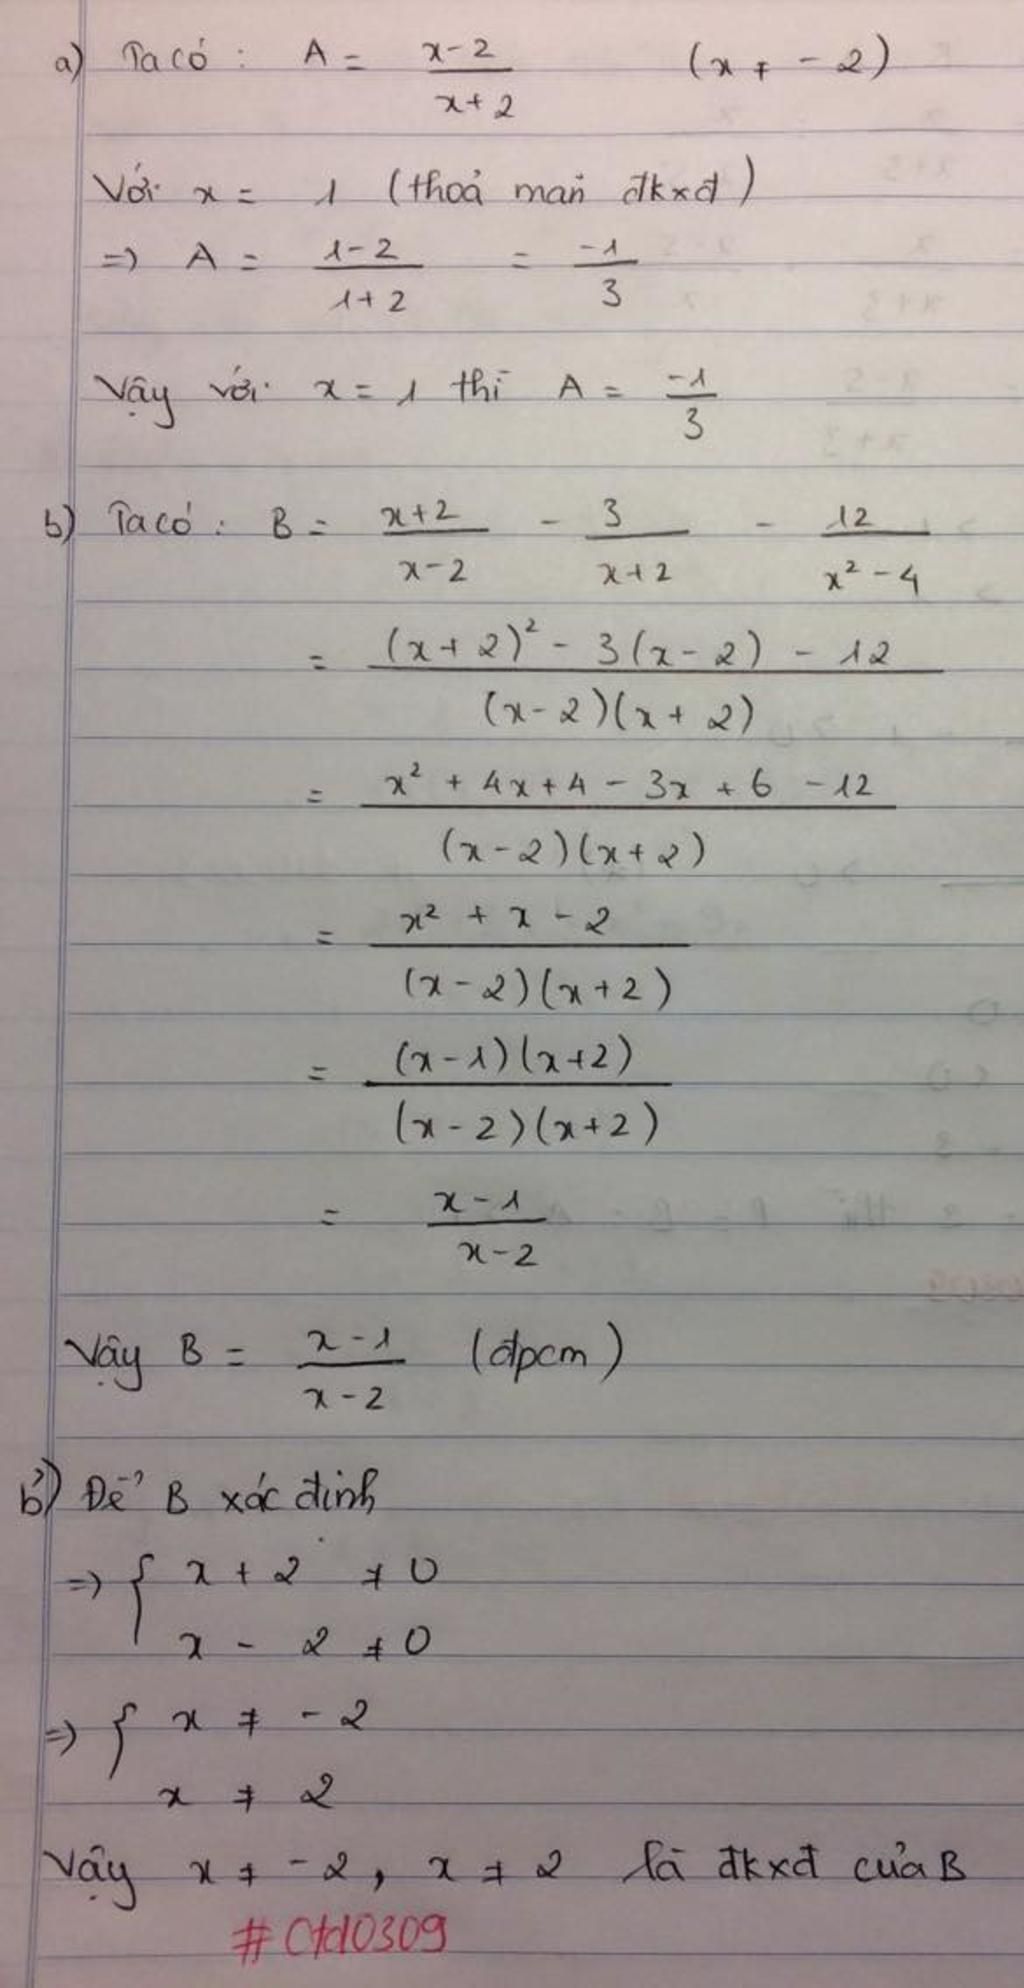 a) Ta có : A = x-2 / x+2 (x ≠ -2)
Với x = 1 (thoả mãn đkxđ)
=> A = 1-2 / 1+2 = -1 / 3
Vậy với x = 1 thì A = -1 / 3
b) Ta có : B = x+2 / x-2 - 3 / x+2 - 12 / x² - 4
= (x+2)² - 3(x-2) - 12 / (x-2)(x+2)
= x² + 4x+4 - 3x + 6 - 12 / (x-2)(x+2)
= x² + x - 2 / (x-2)(x+2)
= (x-1)(x+2) / (x-2)(x+2)
= x-1 / x-2
Vậy B = x-1 / x-2 (đpcm)
b') Để B xác định
=> { x + 2 ≠ 0
x - 2 ≠ 0
=> { x ≠ -2
x ≠ 2
Vậy x ≠ -2, x ≠ 2 là đkxđ của B